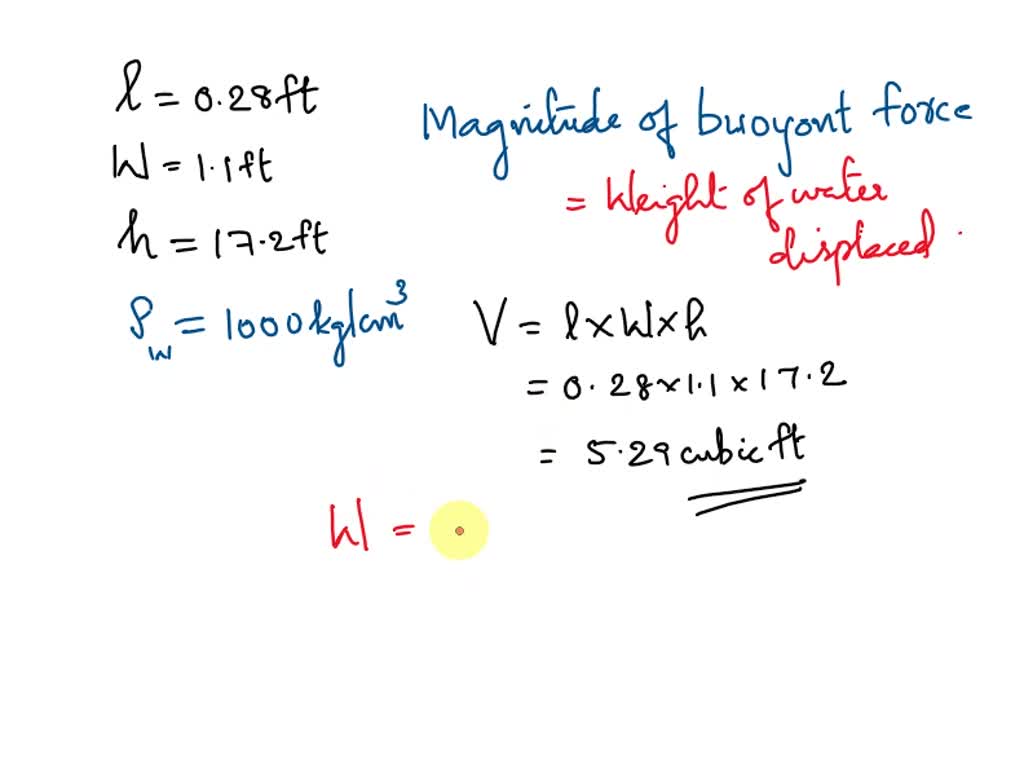 l = 0.28ft
W = 1.1ft
h = 17.2ft
ρw = 1000kg/cm³
Magnitude of buoyont force
= Weight of water
displaced.
V = l×W×h
= 0.28×1.1×17.2
= 5.29 cubic ft
W =